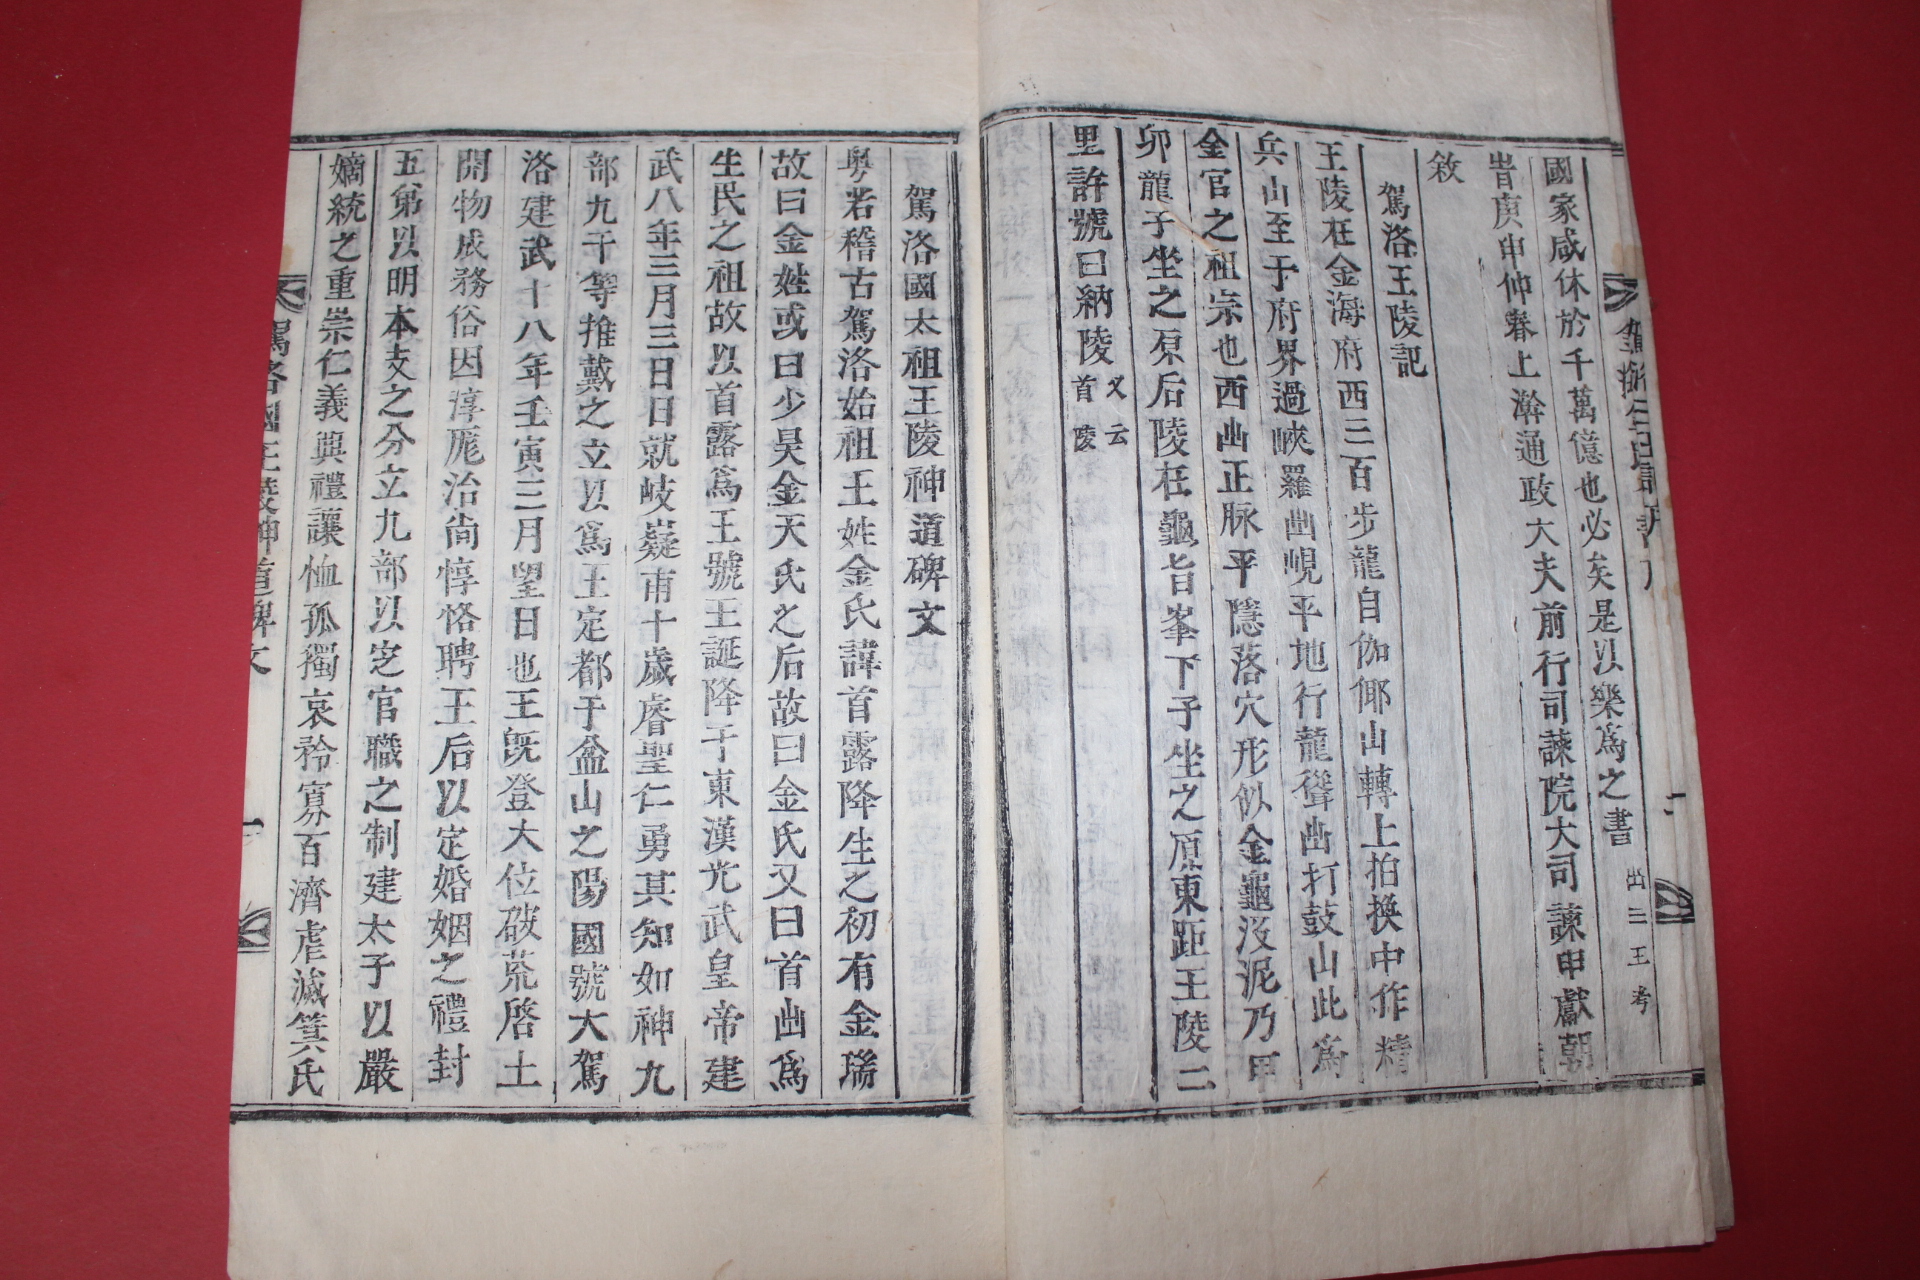 國家咸休於千萬億也必矣是以樂爲之書 出三王考
旹庚申仲春上澣通政大夫前行司諫院大司諫申獻朝
敘
駕洛王陵記
王陵在金海府西三百步龍自伽倻山轉上拍換中作精
兵山至于府界過峽羅出峴平地行龍聳出打鼓山此爲
金官之祖宗也西出正脉平隱落穴形似金龜沒泥乃甲
卯龍子坐之原后陵在龜旨峯下子坐之原東距王陵二
里許號曰納陵 又云首陵
駕洛國太祖王陵神道碑文
粤若稽古駕洛始祖王姓金氏諱首露降生之初有金瑞
故曰金姓或曰少昊金天氏之后故曰金氏又曰首出爲
生民之祖故以首露爲王號王誕降于東漢光武皇帝建
武八年三月三日日就岐嶷甫十歲睿聖仁勇其知如神九
部九干等推戴之立以爲王定都于盆山之陽國號大駕
洛建武十八年壬寅三月望日也王旣登大位破荒啓土
開物成務俗因淳厖治尙惇恪聘王后以定婚姻之禮封
五第以明本支之分立九部以定官職之制建太子以嚴
嫡統之重崇仁義與禮讓恤孤獨哀矜寡百濟虐滅箕氏
駕洛國王陵神道碑文
一